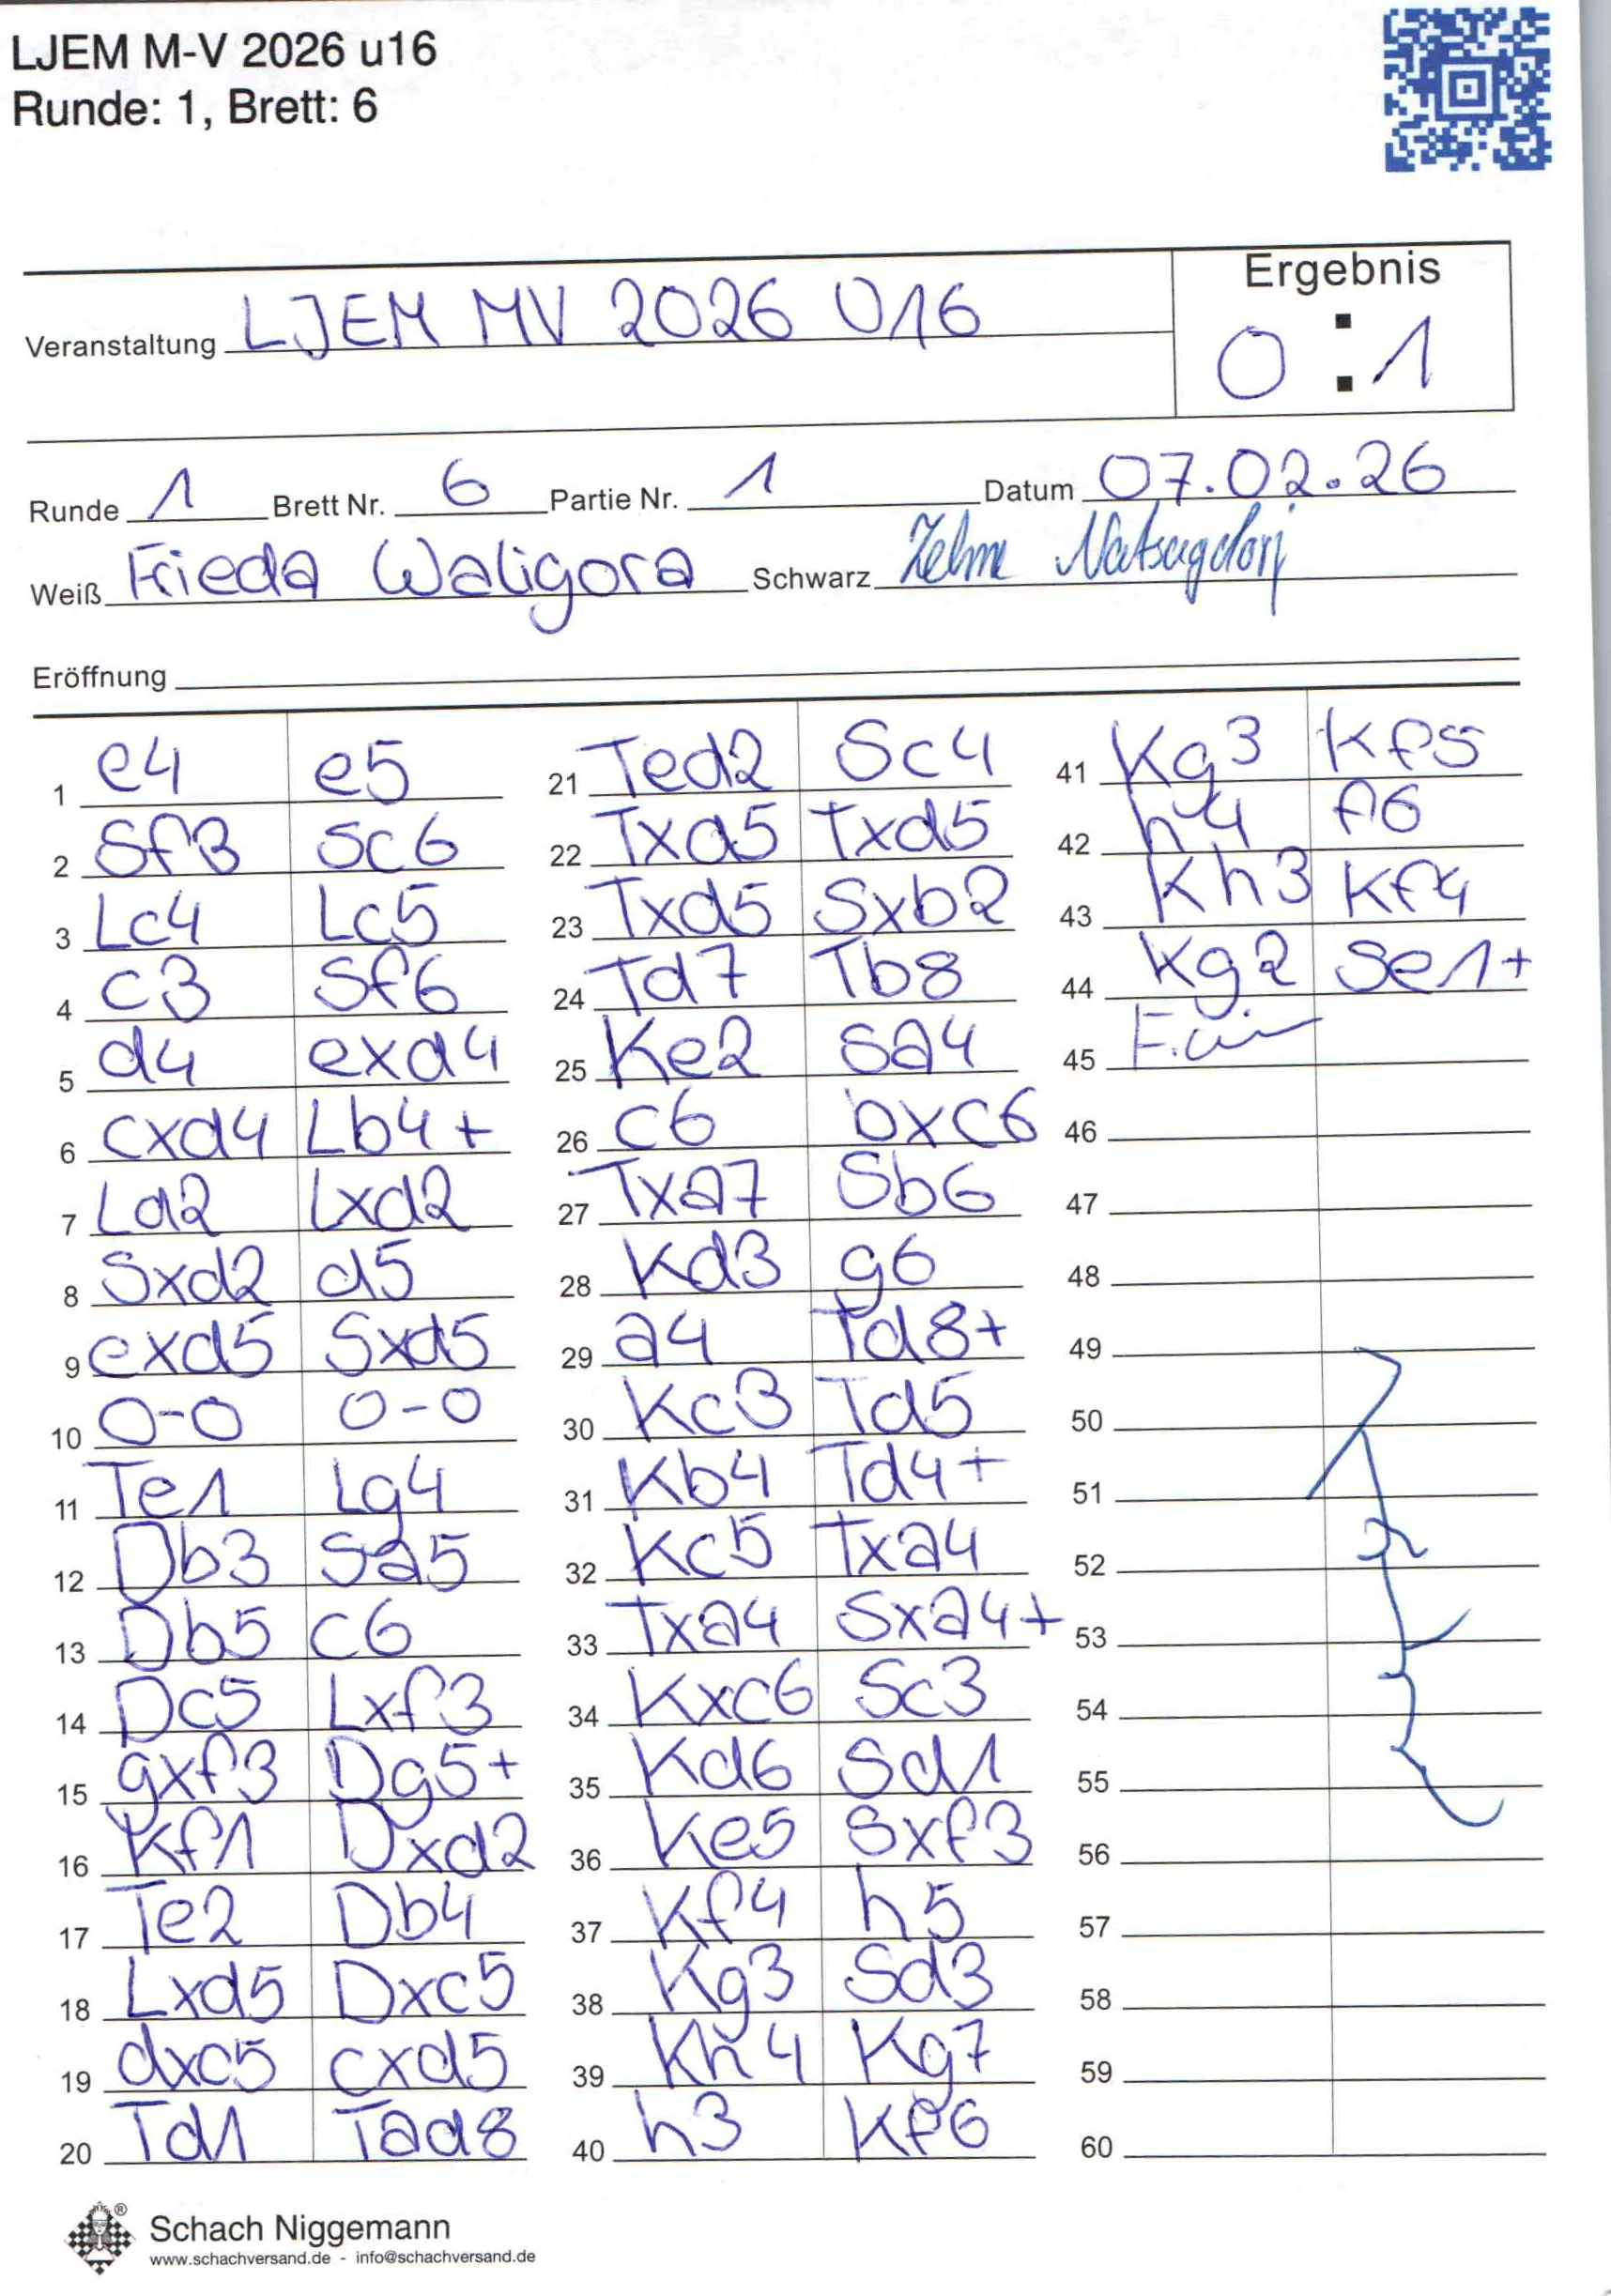 LJEM M-V 2026 u16
Runde: 1, Brett: 6
Ergebnis
Veranstaltung LJEM MV 2026 U16
0 : 1
Runde 1 Brett Nr. 6 Partie Nr. 1 Datum 07.02.26
Weiß Frieda Waligora Schwarz Natsagdorj
Eröffnung
1 e4 e5
2 Sf3 Sc6
3 Lc4 Lc5
4 c3 Sf6
5 d4 exd4
6 cxd4 Lb4+
7 Ld2 Lxd2
8 Sxd2 d5
9 exd5 Sxd5
10 0-0 0-0
11 Te1 Lg4
12 Db3 Sa5
13 Db5 c6
14 Dc5 Lxf3
15 gxf3 Dg5+
16 Kf1 Dxd2
17 Te2 Db4
18 Lxd5 Dxc5
19 dxc5 cxd5
20 Td1 Tad8
21 Ted2 Sc4
22 Txd5 Txd5
23 Txd5 Sxb2
24 Td7 Tb8
25 Ke2 Sa4
26 c6 bxc6
27 Txa7 Sb6
28 Kd3 g6
29 a4 Td8+
30 Kc3 Td5
31 Kb4 Td4+
32 Kc5 Txa4
33 Txa4 Sxa4+
34 Kxc6 Sc3
35 Kd6 Sd1
36 Ke5 Sxf3
37 Kf4 h5
38 Kg3 Sd3
39 Kh4 Kg7
40 h3 Kf6
41 Kg3 Kf5
42 h4 f6
43 Kh3 Kf4
44 Kg2 Se1+
45
46
47
48
49
50
51
52
53
54
55
56
57
58
59
60
® Schach Niggemann
www.schachversand.de - info@schachversand.de